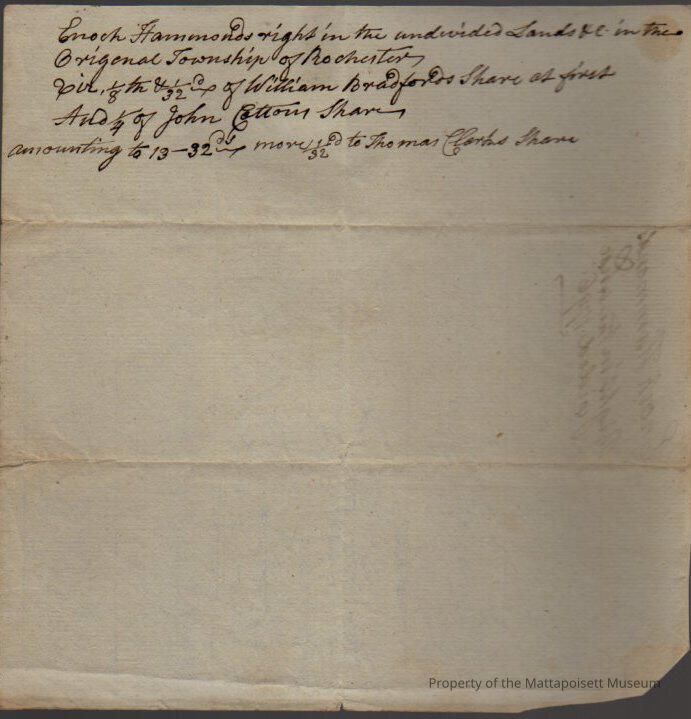 Enoch Hammonds right in the undivided Lands &c in the
Origenal Township of Rochester
Viz, 1/8 th & 1/32 d of William Bradfords Share at first
And 1/4 of John Cottons Share
amounting to 13-32 ds more 1/32 d to Thomas Clarks Share
Property of the Mattapoisett Museum